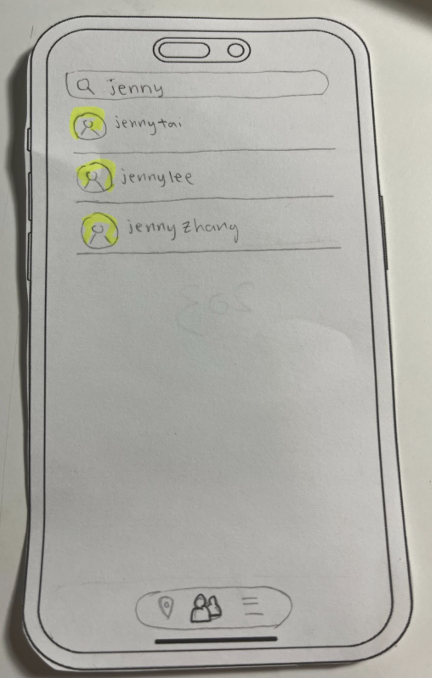 jenny
jennytai
jennylee
jenny zhang